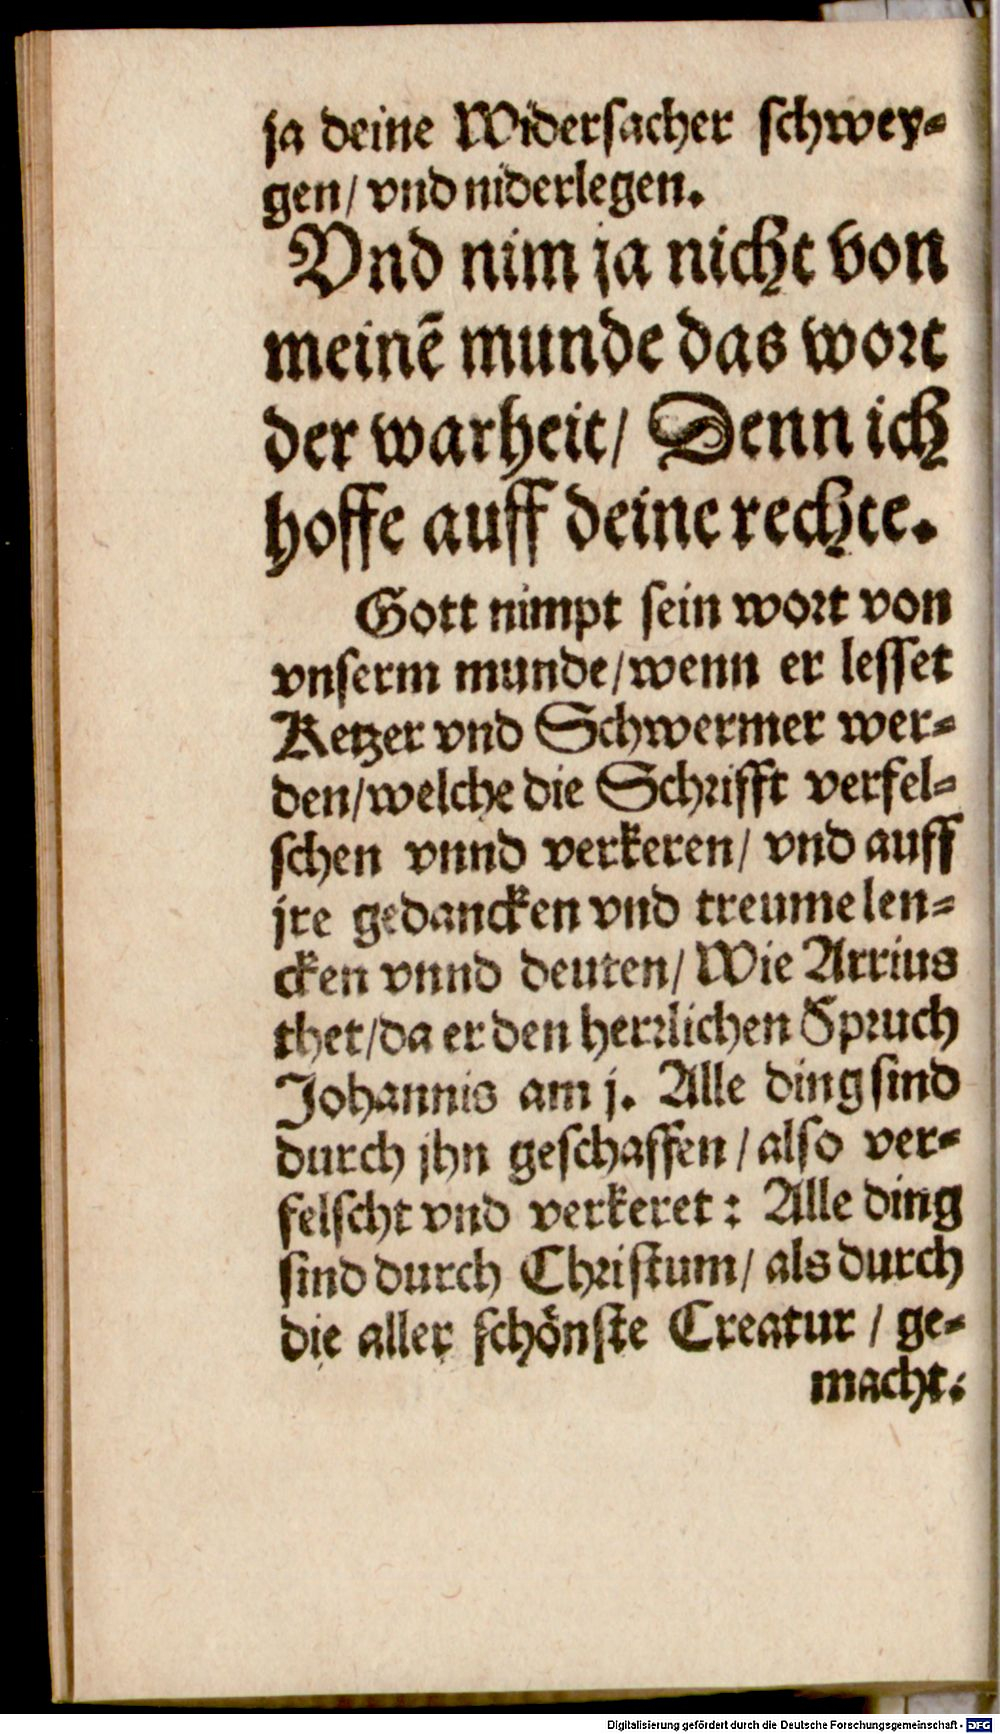 ja deine Widersacher schwey-
gen/ vnd niderlegen.
Vnd nim ja nicht von
meinē munde das wort
der warheit/ Denn ich
hoffe auff deine rechte.
Gott nimpt sein wort von
vnserm munde/wenn er lesset
Ketzer vnd Schwermer wer-
den/welche die Schrifft verfel-
schen vnnd verkeren/ vnd auff
jre gedancken vnd treume len-
cken vnnd deuten/ Wie Arrius
thet/da er den herrlichen Spruch
Johannis am j. Alle ding sind
durch jhn geschaffen/ also ver-
felscht vnd verkeret: Alle ding
sind durch Christum/ als durch
die aller schönste Creatur/ ge-
macht.
Digitalisierung gefördert durch die Deutsche Forschungsgemeinschaft - DFG